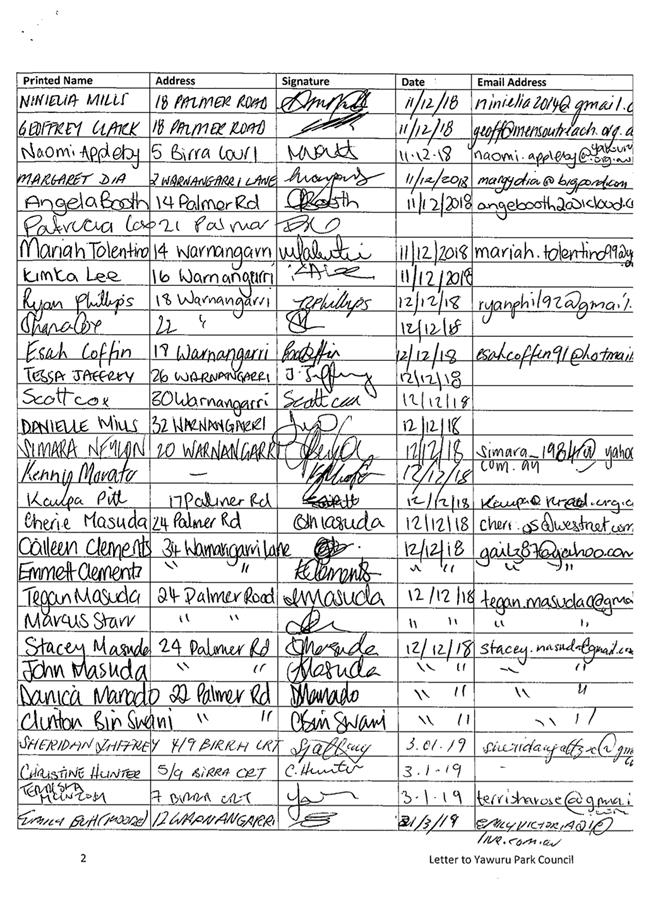 Printed Name Address Signature Date Email Address
NINIELIA MILLS 18 PALMER ROAD 11/12/18 ninielia2014@gmail.c
GEOFFREY CLARK 18 PALMER ROAD 11/12/18 geoff@mensoutreach.org.a
Naomi Appleby 5 Birra Court 11.12.18 naomi.appleby@yawuru.org.au
MARGARET DIA 2 WARNANGARRI LANE 11/12/2018 margydia@bigpond.com
Angela Booth 14 Palmer Rd 11/12/2018 angebooth2@icloud.c
Patricia 21 Palmer
Mariah Tolentino 14 Warnangarri 11/12/2018 mariah.tolentino99@g
Kimka Lee 16 Warnangarri 11/12/2018
Ryan Phillips 18 Warnangarri R Phillips 12/12/18 ryanphil92@gmail.
22 " 12/12/18
Esah Coffin 18 Warnangarri 12/12/18 esahcoffin91@hotmail
TESSA JAFFREY 26 WARNANGARRI 12/12/18
Scott cox 30 Warnangarri Scott cox 12/12/18
DANIELLE MILLS 32 WARNANGARRI 12/12/18
SIMARA 20 WARNANGARRI 12/12/18 simara_1984@yahoo
com.au
Kenny — 12/12/18
Kaupa Pitt 17 Palmer Rd 12/12/18
Cherie Masuda 24 Palmer Rd C Masuda 12/12/18
Coileen Clements 34 Warnangarri Lane 12/12/18 gailz87@yahoo.com
Emmett Clements " " E Clements " " " "
Tegan Masuda 24 Palmer Road Masuda 12/12/18 tegan.masuda@gma
Marcus Starr " " " " " "
Stacey Masuda 24 Palmer Rd Masuda 12/12/18 stacey.masuda@gmail.com
John Masuda " " Masuda " " " "
Danica Manado 22 Palmer Rd DManado " " " "
Clinton Bin Swani " " C Bin Swani " " " "
SHERIDAN JAFFREY 4/9 BIRRA CRT 3.01.19
CHRISTINE HUNTER 5/9 BIRRA CRT C. Hunter 3.1.19 -
7 BIRRA CRT 3.1.19 terrisharose@gmail
.com
12 WARNANGARRI
live.com.au
2 Letter to Yawuru Park Council